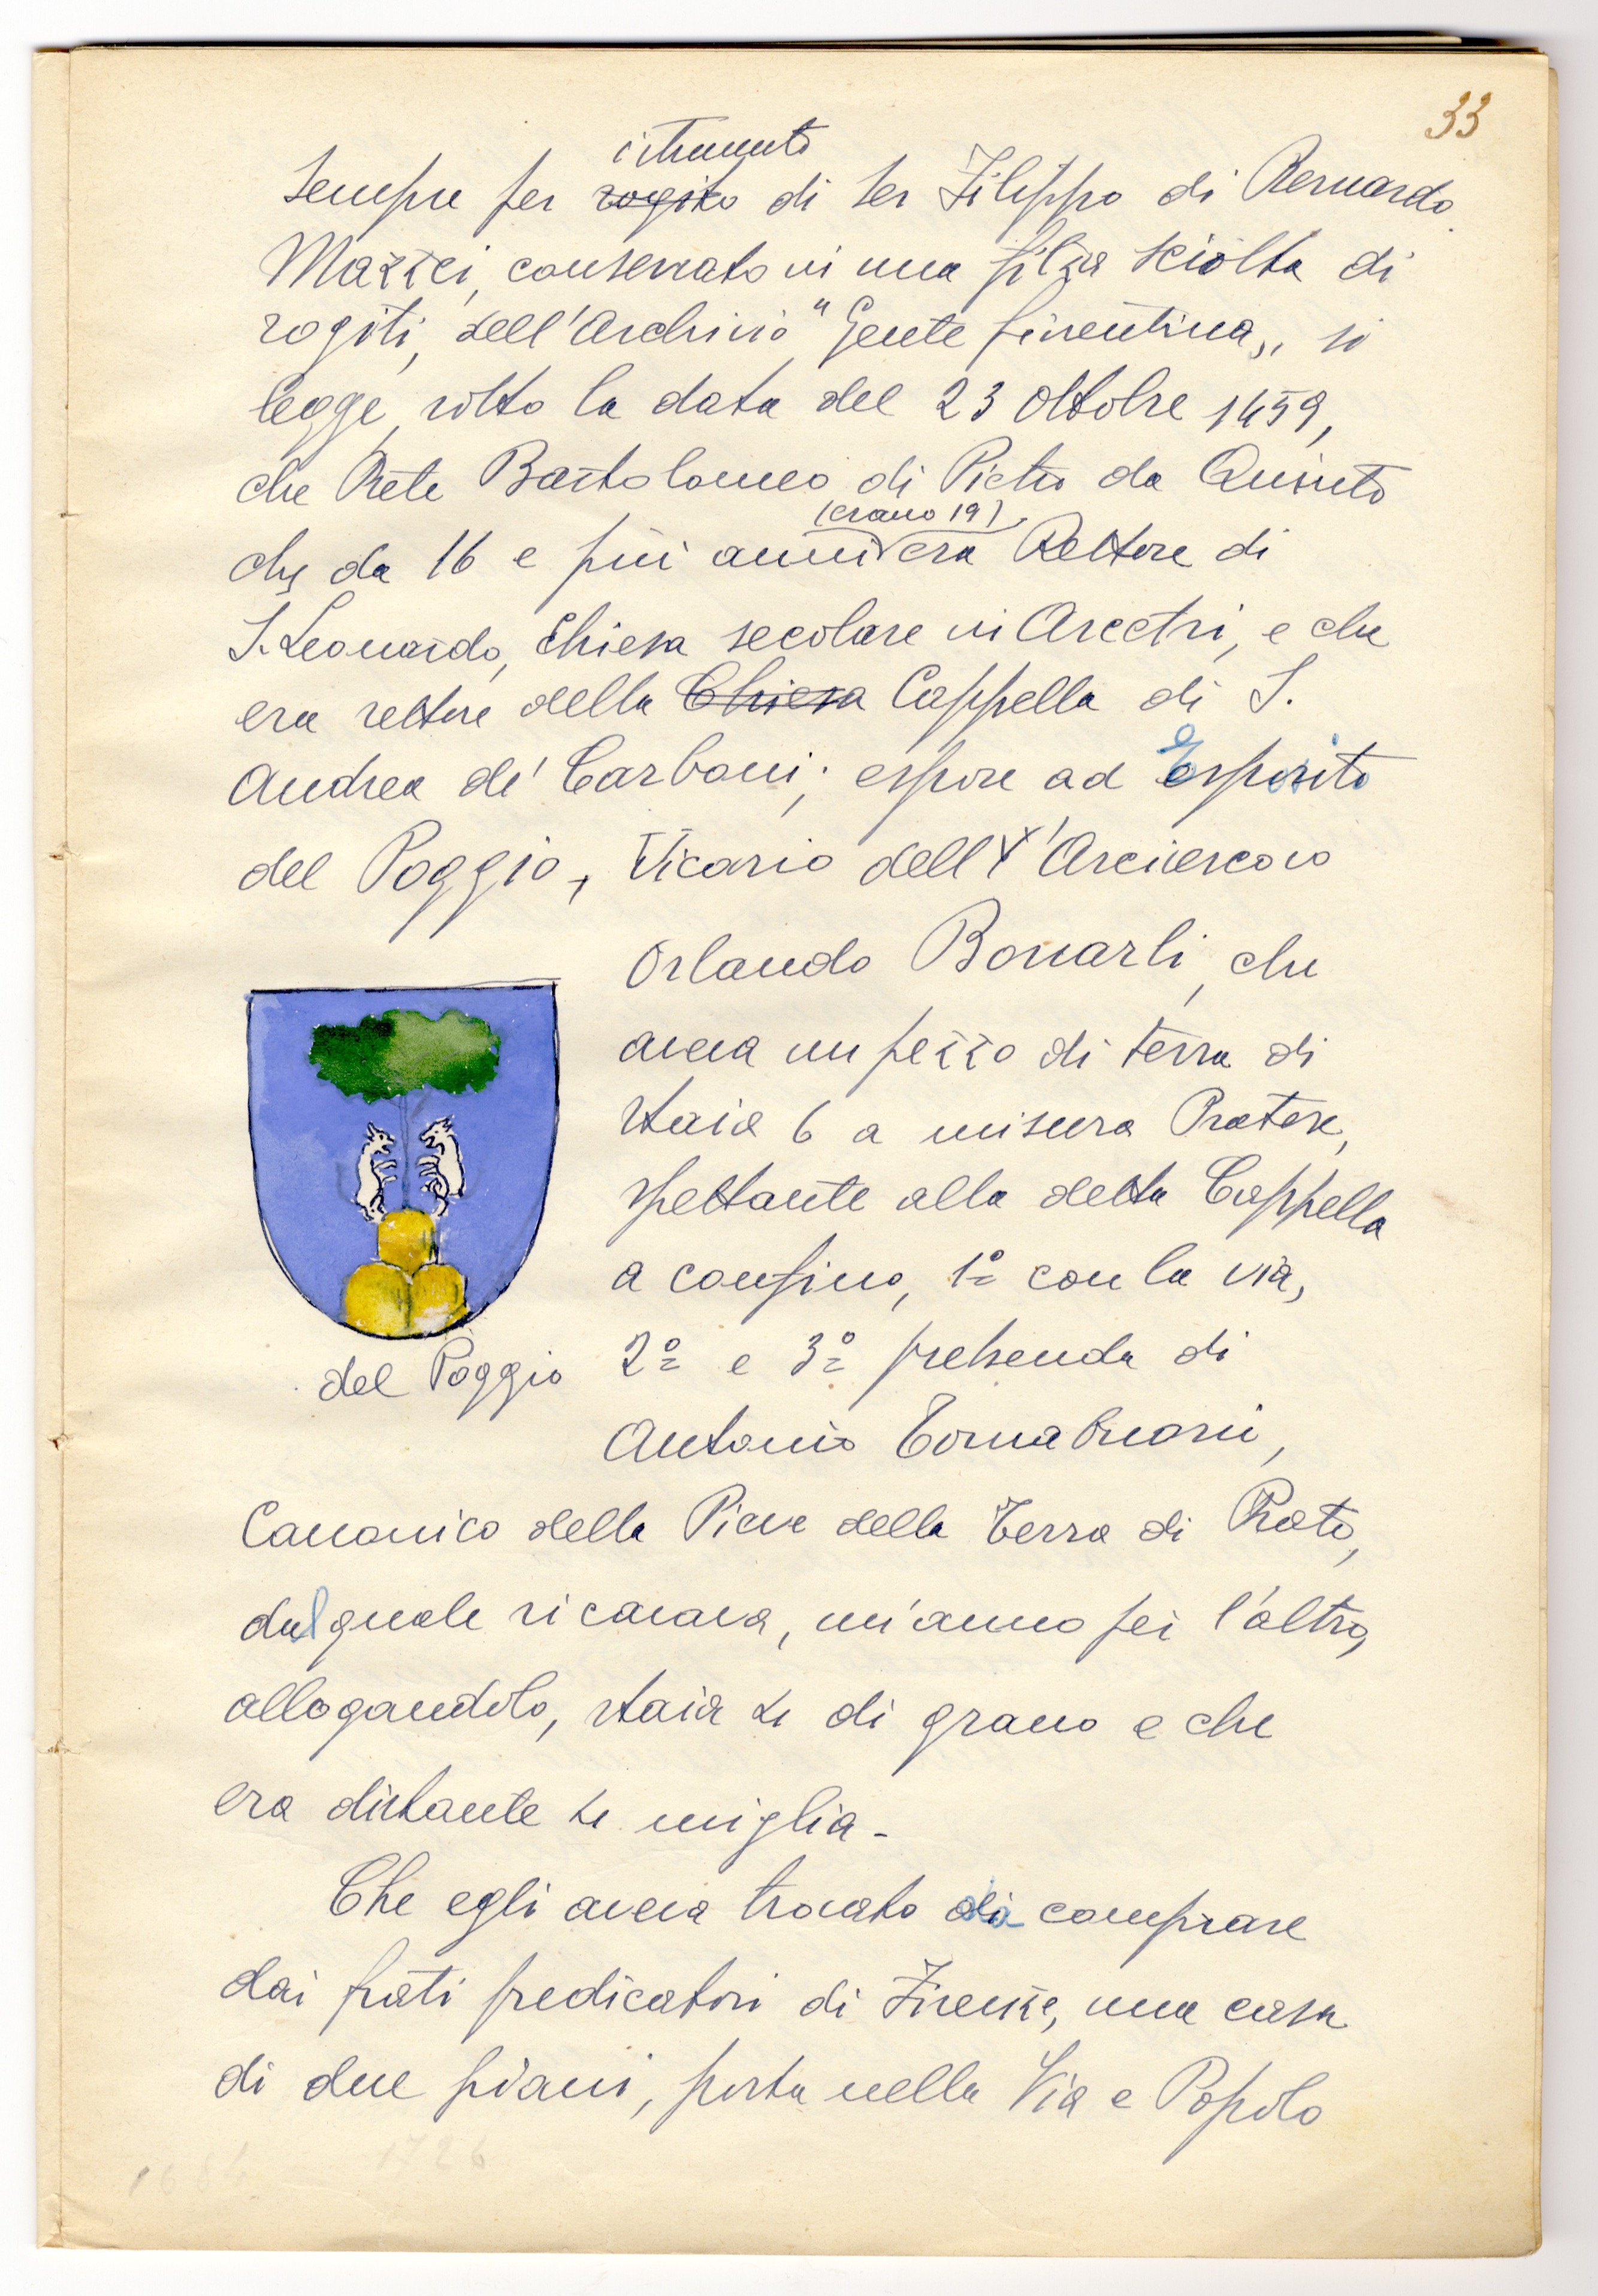 33
istrumento
Sempre per rogito di Ser Filippo di Bernardo
Mazzei, conservato in una filza sciolta di
rogiti, dell'Archivio "Gente fiorentina,, si
legge, sotto la data del 23 Ottobre 1459,
che Prete Bartolomeo di Pietro da Quinto
(erano 19)
che da 16 e più anni era Rettore di
S. Leonardo, Chiesa secolare in Arcetri, e che
era rettore della Chiesa Cappella di S.
Andrea de' Carboni; espose ad Esposito
del Poggio, Vicario dell'Arcivescovo
Orlando Bonarli, che
aveva un pezzo di terra di
staia 6 a misura Pratese,
spettante alla detta Cappella
a confino, 1º con la via,
2º e 3º prebenda di
Antonio Tornabuoni,
del Poggio
Canonico della Pieve della Terra di Prato,
dal quale ricavava, un'anno per l'altro,
allogandolo, staia 4 di grano e che
era distante 4 miglia.
Che egli aveva trovato da comprare
dai frati predicatori di Firenze, una casa
di due piani, posta nella Via e Popolo